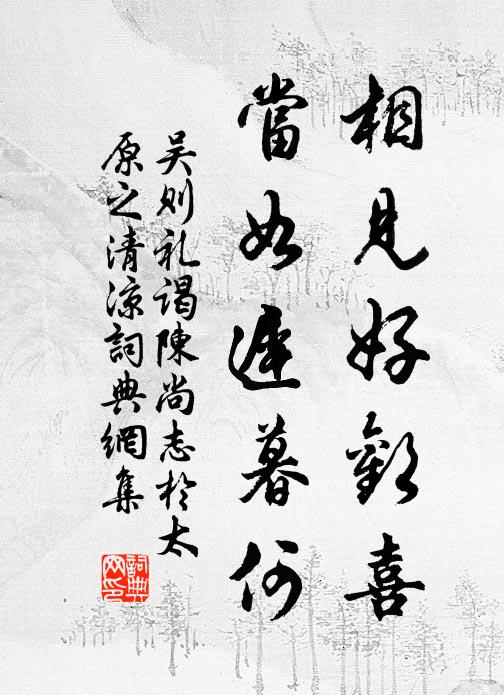 相見好歡喜
當如遲暮何
吴则礼谒陳尚志於太
原之清涼詞典網集
詞典
网印